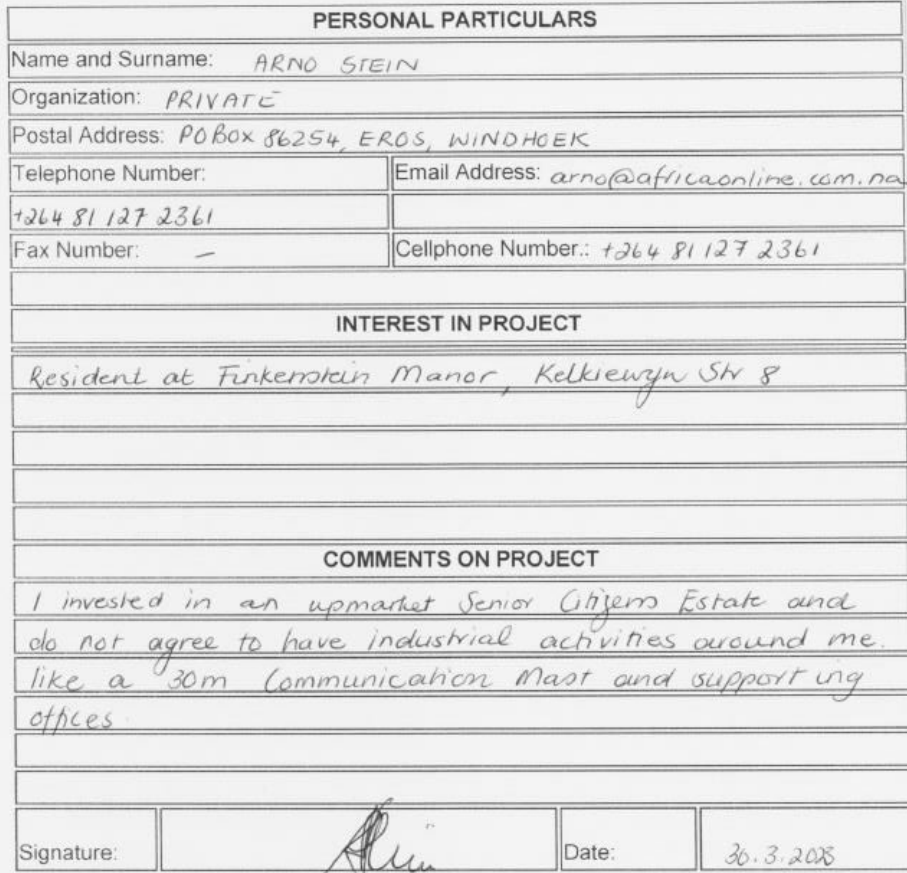 PERSONAL PARTICULARS
Name and Surname: ARNO STEIN
Organization: PRIVATE
Postal Address: PO BOX 86254, EROS, WINDHOEK
Telephone Number: Email Address: arno@africaonline.com.na
+264 81 127 2361
Fax Number: – Cellphone Number.: +264 81 127 2361
INTEREST IN PROJECT
Resident at Finkenstein Manor, Kelkiewyn Str 8
COMMENTS ON PROJECT
I invested in an upmarket Senior Citizens Estate and
do not agree to have industrial activities around me.
like a 30m Communication Mast and supporting
offices.
Signature: Date: 30.3.2023